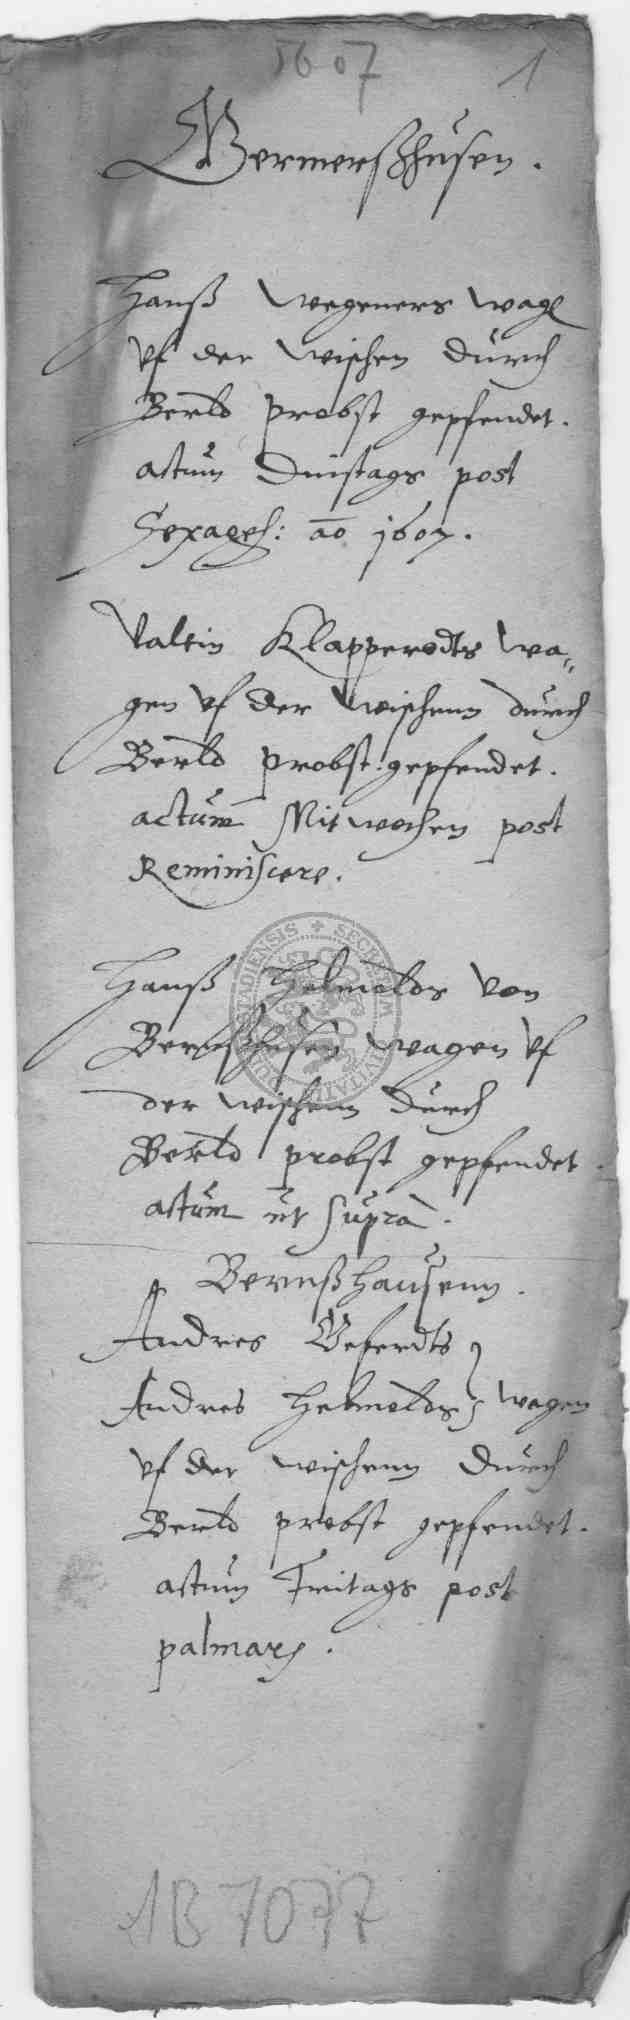 1607 1
Germerßhusen.
Hanß Wegeners wagē
uf der wischen durch
Berld Probst gepfendet.
actum Dinstags post
Sexages: ao 1607.
Valtin Klapperodts wa-
gen uf der wischenn durch
Berld Probst gepfendet.
actum Mitwochen post
Reminiscere.
Hanß Helmolds von
Bernßhusen wagen uf
der wischenn durch
Berld Probst gepfendet.
actum ut supra.
Bernßhausenn.
Andres Geferdts
Andres Helmolds wagen
uf der wischenn durch
Berld Probst gepfendet.
actum Freitags post
palmarum.
AB 7077